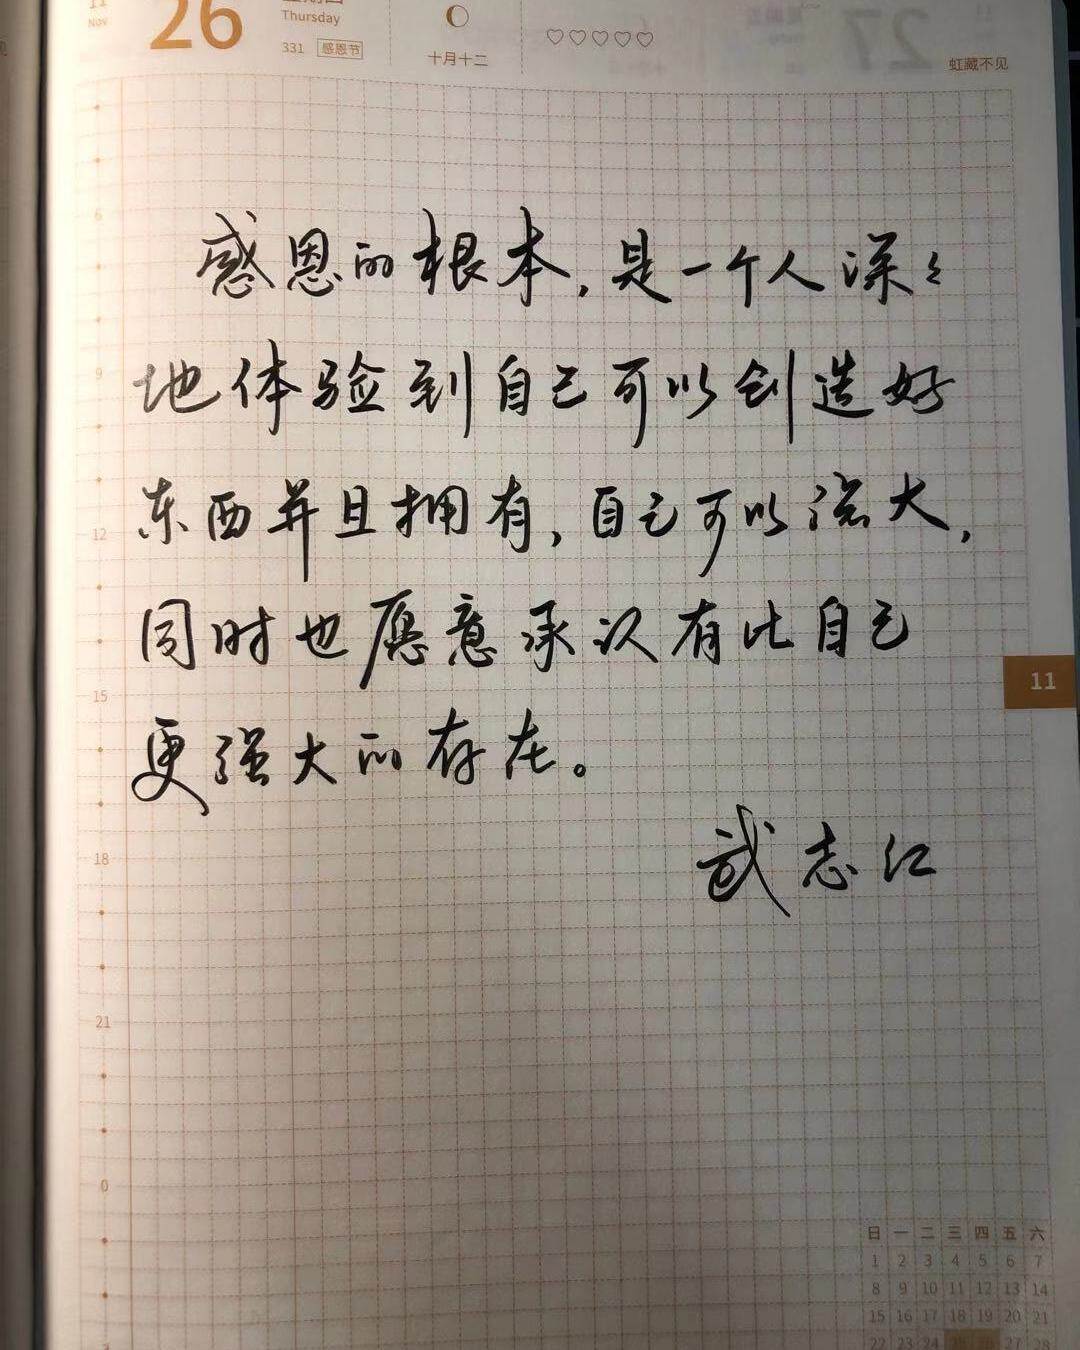 11
Nov
26
Thursday
331 感恩节
十月十二
♡♡♡♡♡
27
虹藏不见
6
感恩的根本,是一个人深々
9
地体验到自己可以创造好
东西并且拥有,自己可以强大,
12
同时也愿意承认有比自己
11
15
更强大的存在。
18
武志红
21
0
日 一 二 三 四 五 六
1 2 3 4 5 6 7
8 9 10 11 12 13 14
15 16 17 18 19 20 21
22 23 24 25 26 27 28
3